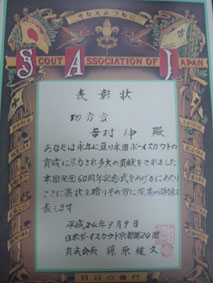 そなえよつねに
SCOUT ASSOCIATION OF JAPAN
表彰状
功労章
吉村 伸 殿
あなたは永年に亘り本団ボーイスカウトの
育成に尽力され多大の貢献をされました
本団発団60周年記念式をあげるにあたり
ここに表状を贈りその労に深甚の謝意を
表します
平成24年9月9日
日本ボーイスカウト京都第24団
育成会長 藤原健久
日日の善行